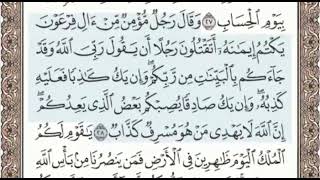 بِيَوْمِ الْحِسَابِ ٢٧ وَقَالَ رَجُلٌ مُّؤْمِنٌ مِّنْ ءَالِ فِرْعَوْنَ
يَكْتُمُ إِيمَٰنَهُۥٓ أَتَقْتُلُونَ رَجُلًا أَن يَقُولَ رَبِّيَ اللَّهُ وَقَدْ
جَآءَكُم بِالْبَيِّنَٰتِ مِن رَّبِّكُمْ ۖ وَإِن يَكُ كَٰذِبًا فَعَلَيْهِ
كَذِبُهُۥ ۖ وَإِن يَكُ صَادِقًا يُصِبْكُم بَعْضُ الَّذِى يَعِدُكُمْ ۖ
إِنَّ اللَّهَ لَا يَهْدِى مَنْ هُوَ مُسْرِفٌ كَذَّابٌ ٢٨ يَٰقَوْمِ لَكُمُ
الْمُلْكُ الْيَوْمَ ظَٰهِرِينَ فِى الْأَرْضِ فَمَن يَنصُرُنَا مِنۢ بَأْسِ اللَّهِ